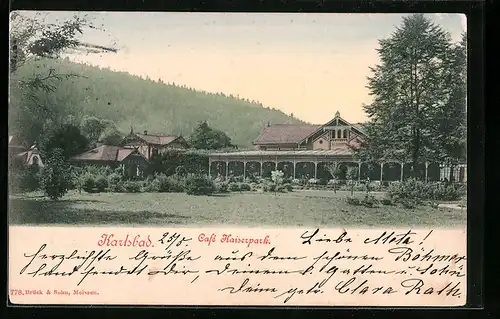 Karlsbad. 25/5. Café Kaiserpark. Liebe Meta!
Herzlichste Grüße aus dem schönen Böhmer
land sendet Dir, Deinem l. Gatten u. Sohn
Deine getr. Clara Rath.
778, Brück & Sohn, Meissen.